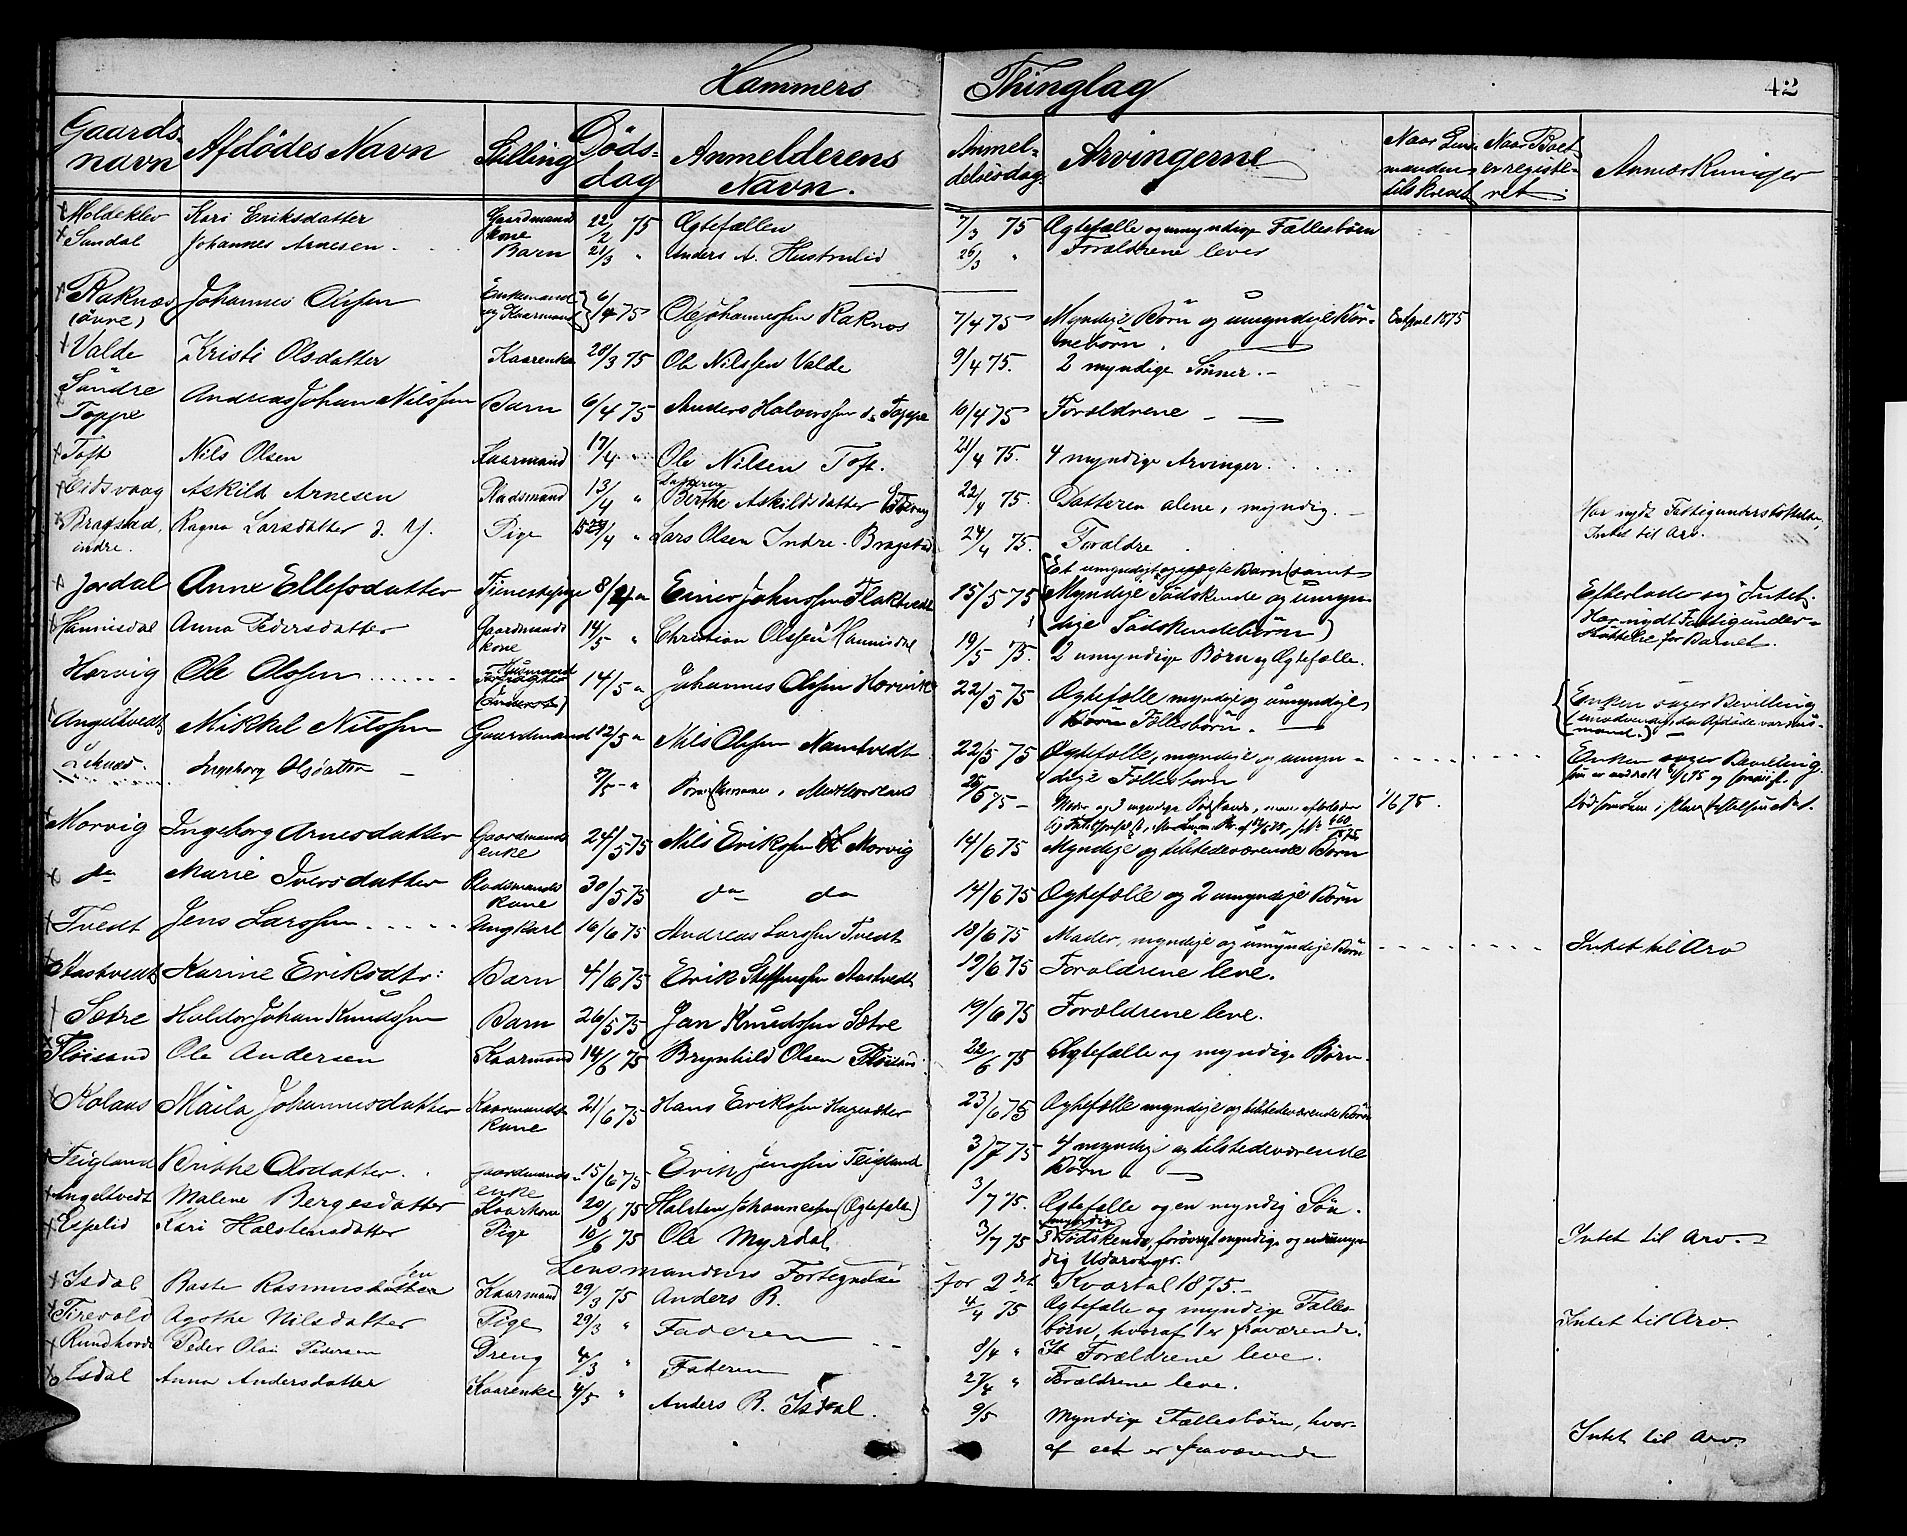 Hammers Thinglag 42
Gaards-navn Afdödes Navn Stilling Döds-dag Anmelderens Navn. Anmel-delsesdag Arvingerne Naar Lens-manden tilskrevet Naar Boet er registe-ret Anmærkninger
Moldeklev Kari Eriksdatter Gaardmands kone 22/2 75 Ægtefællen 7/3 75 Ægtefælle og umyndige Fællesbörn
Sandal Johannes Arnesen Barn 21/3 " Anders A. Hustrulid 26/3 " Forældrene lever
Raknæs (övre) Johannes Olssen Enkemand og Kaarmand 6/4 75 Ole Johannessen Raknæs 7/4 75 Myndige Börn og umyndige Bör-nebörn.
Valde Kristi Olsdatter Kaarenke 20/3 75 Ole Nilssen Valde 9/4 75. 2 myndige Sönner.
Söndre Toppe Andreas Johan Nilssen Barn 6/4 75 Anders Halvorssen s. Toppe 16/4 75 Forældrene
Toft Nils Olsen Kaarmand 17/4 " Ole Nilsen Toft. 21/4 75. 4 myndige Arvinger.
Eidsvaag Askild Arnesen Pladsmand 13/4 " Datteren Birthe Askildsdatter Eidsvaag 22/4 75. Datteren alene, myndig. Har nydt Fattigunderstöttelse, Intet til Arv.
Bragstad, indre. Ragna Larsdatter d. y. Pige /4 " Lars Olsen Indre-Bragstad 24/4 75. Forældre
Jordal Anne Ellefsdatter Tienestepige 8/4 " Einer Johnssen Flaktvedt 15/5 75 Et umyndigt uægte Barn (samt Myndige Södskende og umyn-dige Södskendebörn) Efterlader sig Intet. Har nydt Fattigunder-stöttelse for Barnet.
Hannisdal Anna Pedersdatter Gaardmands kone 14/5 " Christian Olssen Hannisdal 19/5 75. 2 umyndige Börn og Ægtefælle.
Horvig Ole Olssen Husmand 14/5 " Johannes Olssen Horvik 22/5 75 Ægtefælle, myndige og umyndige Fællesbörn. Enken söger Bevilling (unödvendig, da Afdöde var Hus-mand.)
Angeltvedt Mikkel Nilssen Gaardmand 12/5 " Nils Olssen Namtvedt 22/5 75 Ægtefælle, myndige og umyn-dige Fællesbörn Enken söger Bevilling.
Ingeborg Olsdatter /5 " 26/5 75 1/6 75.
Morvig Ingeborg Arnesdatter Gaardmands enke 24/5 75 Nils Erikssen Morvig 14/6 75 Myndige og tilstedeværende Börn
do Marie Iversdatter Pladsmands kone 30/5 75 do do 14/6 75 Ægtefælle og 2 umyndige Börn
Tvedt Jens Larssen Ungkarl 16/6 75 Andreas Larssen Tvedt 18/6 75 Moder, myndige og umyndige Börn Intet til Arv
Aastvedt Karine Eriksdtr: Barn 4/6 75 Erik Steffenssen Aastvedt 19/6 75 Forældrene leve.
Sætre Haldor Johan Knudssen Barn 26/5 75 Jan Knudssen Sætre 19/6 75 Forældrene leve.
Flöisand Ole Andersen Kaarmand 14/6 75 Brynhild Olsen Flöisand 22/6 75 Ægtefælle og myndige Börn.
Kolaas Maila Johannesdatter Kaarmands kone 21/6 75 Hans Erikssen 23/6 75 Ægtefælle myndige og tilstedeværende Börn
Teigland Brithe Olsdatter Gaardmands enke 15/6 75 Erik Jenssen Teigland 3/7 75 4 myndige og tilstedeværende Börn
Angeltvedt Malene Bergesdatter Kaarkone 20/6 75 Halsten Johannessen (Ægtefælle) 3/7 75. Ægtefælle og en myndig Sön.
Espelid Kari Halstensdatter Pige 16/6 75 Ole Myrdal 3/7 75 3 myndige Södskende, forövrigt myndige og en umyn-dig Udarvinger. Intet til Arv.
Lensmandens Fortegnelse for 2det Kvartal 1875.
Isdal Baste Rasmussen Kaarmand 29/3 75 Anders B. 4/4 75 Ægtefælle og myndige Fælles-börn, hvoraf 1 er fraværende.
Tirevold Agathe Nilsdatter Pige 29/3 " Faderen 8/4 " Forældrene leve. Intet til Arv.
Rundhovde Peder Olai Pedersen Dreng 4/3 " Faderen 27/4 " Forældrene leve.
Isdal Anna Andersdatter Kaarenke 4/5 " Anders B. Isdal. 9/5 Myndige Fællesbörn, hvor-af eet er fraværende Intet til Arv.